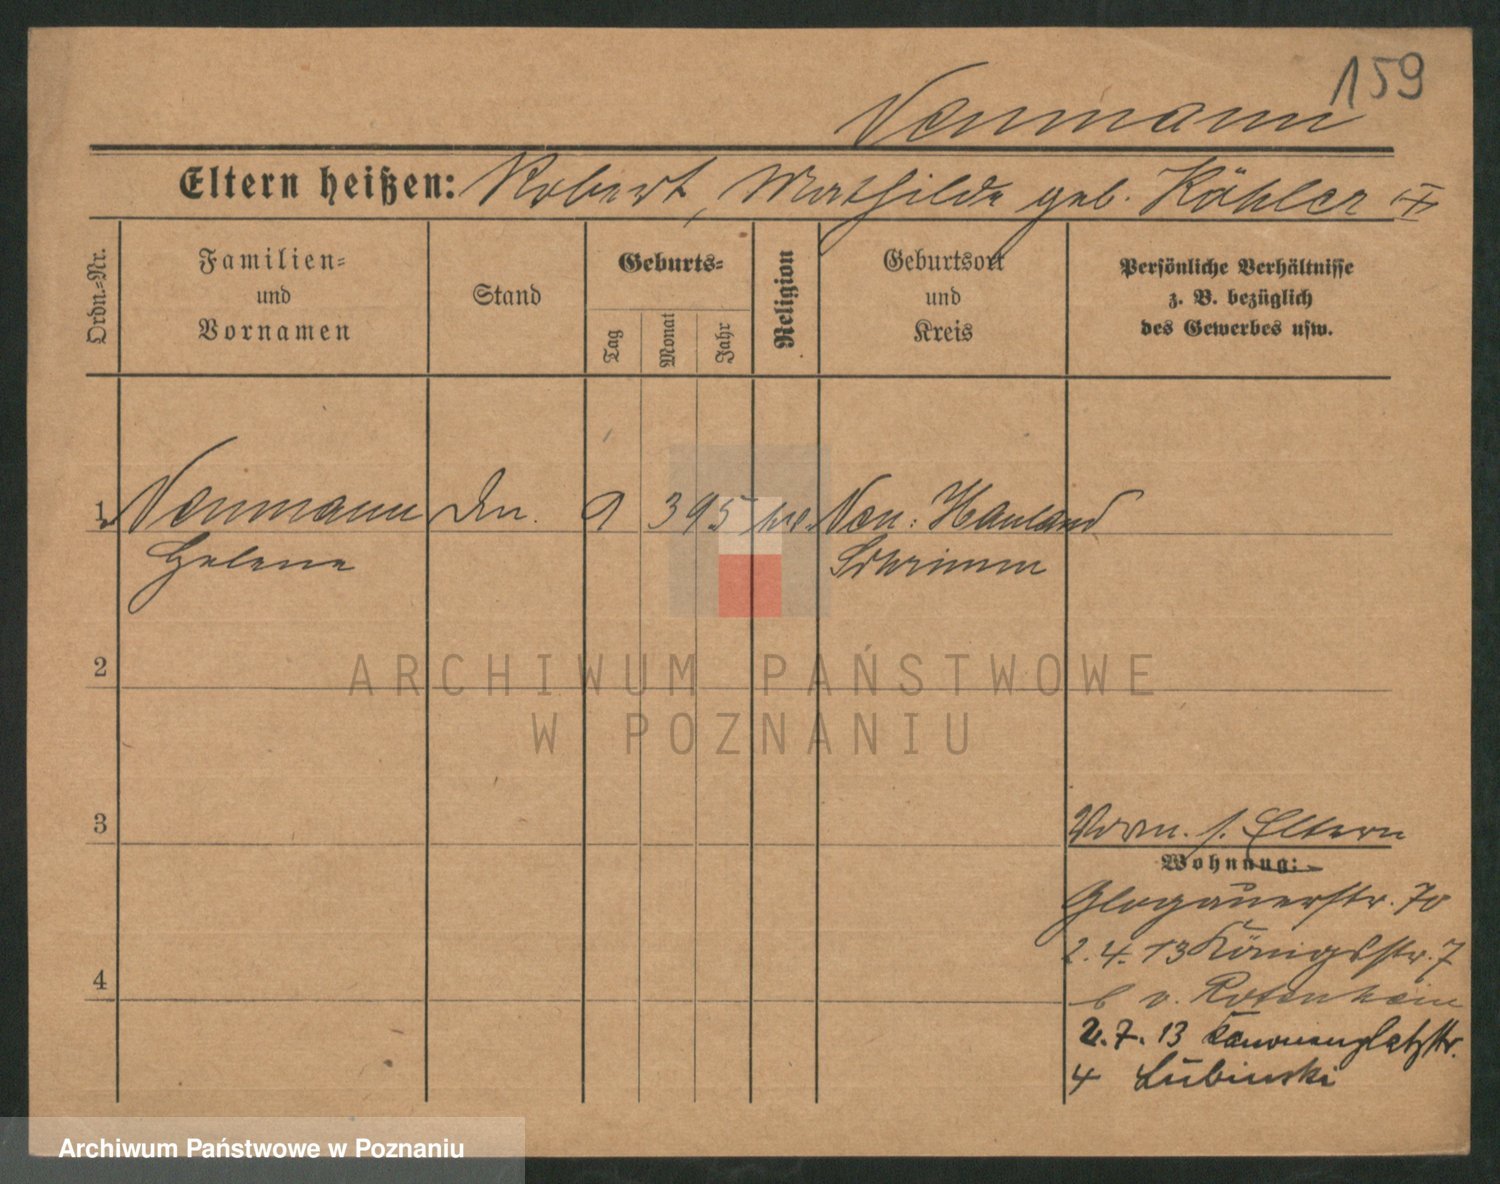 159
Neumann
Eltern heißen: Robert, Mathilde geb. Köhler
Ordn.-Nr.
Familien-
und
Vornamen
Stand
Geburts-
Tag
Monat
Jahr
Religion
Geburtsort
und
Kreis
Persönliche Verhältnisse
z. B. bezüglich
des Gewerbes usw.
1 Neumann 9 3 95 Neu: Hauland
Helene Schrimm
2
ARCHIWUM PAŃSTWOWE
W POZNANIU
3
Vorm. s. Eltern
Wohnung:
Glogauerstr. 70
2. 4. 13 Königsstr. 7
b v.
2. 7. 13 Kanonenplatzstr.
4 Lubinski
4
Archiwum Państwowe w Poznaniu